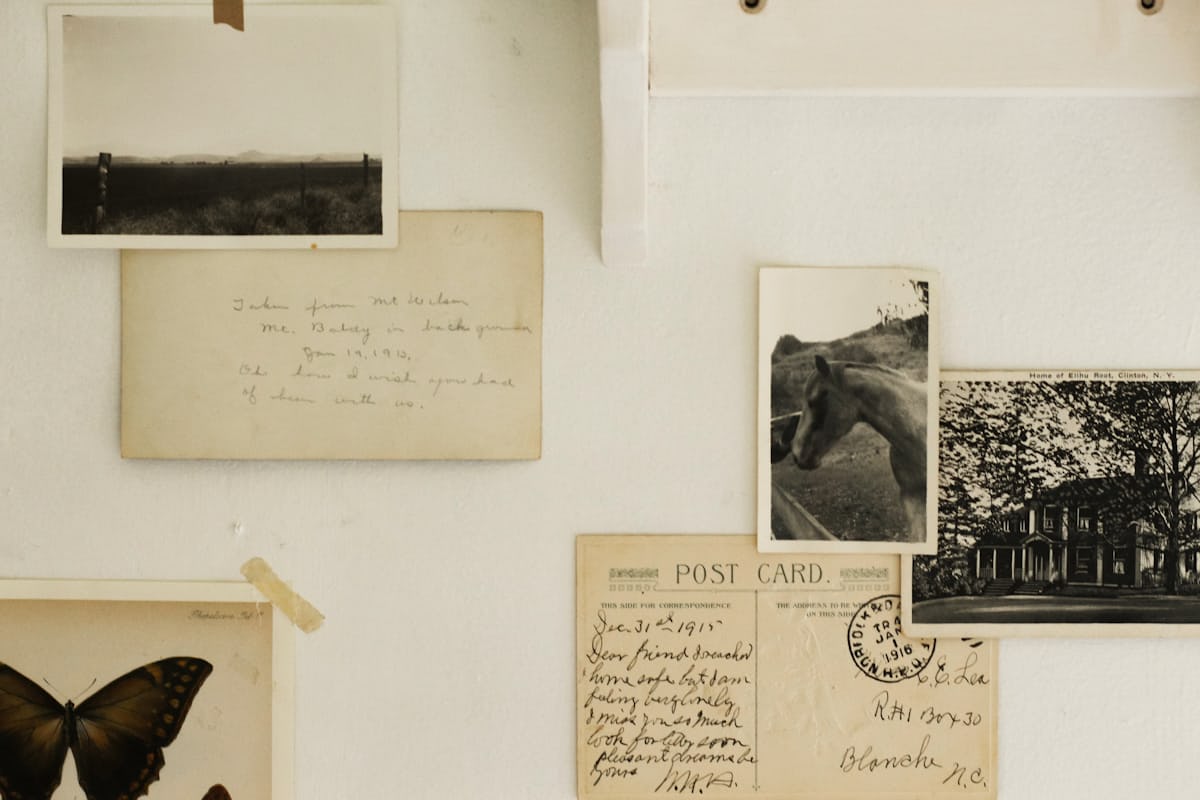 Taken from Mt Wilson
Mt. Baldy in background
Jan 19, 1913.
Oh how I wish you had
of been with us.
Home of Elihu Root, Clinton, N. Y.
POST CARD.
THIS SIDE FOR CORRESPONDENCE
THE ADDRESS TO BE
ON THIS SIDE
Dec. 31st 1915
Dear friend I reached
home safe but I am
feeling very lonely
I miss you so much
look for letter soon
pleasant dreams be
yours
NORFOLK & DA
TRA
JAN
1
1916
R.P.O.
C. E. Lea
R.#1 Box 30
Blanche
N.C.